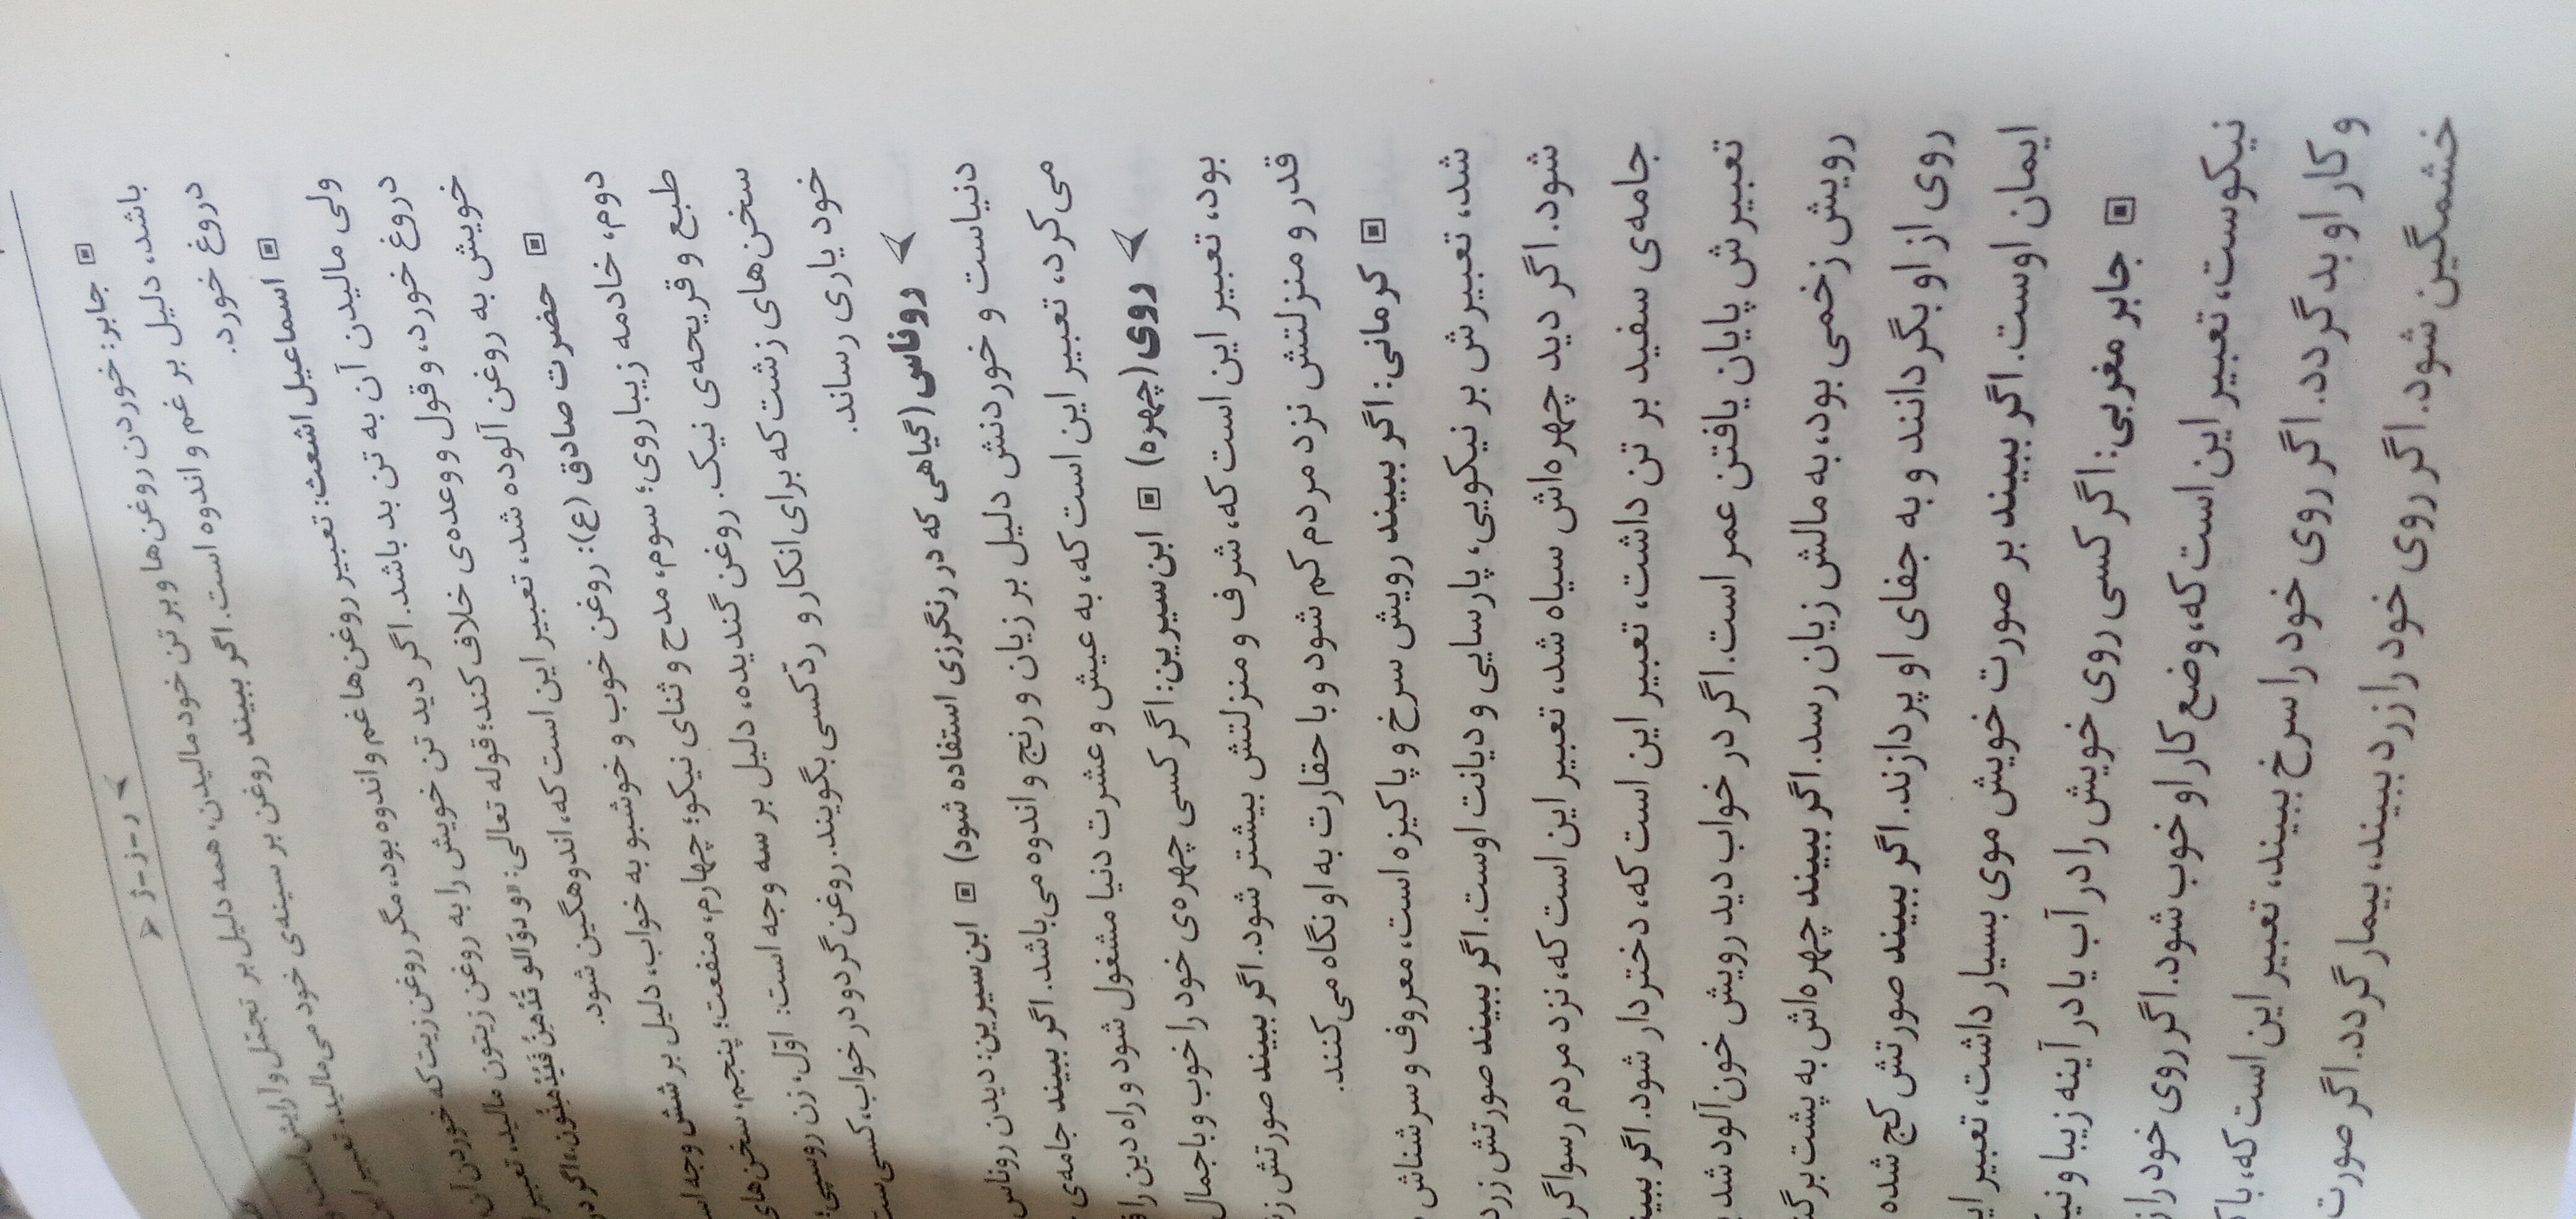 د-ز-ژ
▣ جابر: خوردن روغن‌ها و بر تن خود مالیدن، همه دلیل بر تجمّل و آرایش است و
باشد، دلیل بر غم و اندوه است. اگر ببیند روغن بر سینه‌ی خود می‌مالید، تعبیر این
دروغ خورد.
▣ اسماعیل اشعث: تعبیر روغن‌ها غم و اندوه بود، مگر روغن زیت که خوردن آن
ولی مالیدن آن به تن بد باشد. اگر دید تن خویش را به روغن زیتون مالید، تعبیر
دروغ خورد، و قول و وعده‌ی خلاف کند؛ قوله تعالی: «و دوّالو تُدْهِنُ فَیُدْهِنُون» اگر در
خویش به روغن آلوده شد، تعبیر این است که، اندوهگین شود.
▣ حضرت صادق (ع): روغن خوب و خوشبو به خواب، دلیل بر شش وجه
دوم، خادمه زیباروی؛ سوم، مدح و ثنای نیکو؛ چهارم، منفعت؛ پنجم، سخن‌های
طبع و قریحه‌ی نیک. روغن گندیده، دلیل بر سه وجه است: اوّل، زن روسپی؛
سخن‌های زشت که برای انکار و ردّ کسی بگویند. روغن گردو در خواب، کسی
خود یاری رساند.
◄ روناس (گیاهی که در رنگرزی استفاده شود) ▣ ابن‌سیرین: دیدن روناس
دنیاست و خوردنش دلیل بر زیان و رنج و اندوه می‌باشد. اگر ببیند جامه‌ی
می‌کرد، تعبیر این است که، به عیش و عشرت دنیا مشغول شود و راه دین را
◄ روی (چهره) ▣ ابن‌سیرین: اگر کسی چهره‌ی خود را خوب و با جمال
بود، تعبیر این است که، شرف و منزلتش بیشتر شود. اگر ببیند صورتش
قدر و منزلتش نزد مردم کم شود و با حقارت به او نگاه می‌کنند.
▣ کرمانی: اگر ببیند رویش سرخ و پاکیزه است، معروف و سرشناس
شد، تعبیرش بر نیکویی، پارسایی و دیانت اوست. اگر ببیند صورتش زرد
شود. اگر دید چهره‌اش سیاه شد، تعبیر این است که، نزد مردم رسوا
جامه‌ی سفید بر تن داشت، تعبیر این است که، دختردار شود. اگر
تعبیرش پایان یافتن عمر است. اگر در خواب دید رویش خون‌آلود شد
رویش زخمی بود، به مالش زیان رسد. اگر ببیند چهره‌اش به پشت
روی از او بگردانند و به جفای او پردازند. اگر ببیند صورتش کج شده
ایمان اوست. اگر ببیند بر صورت خویش موی بسیار داشت، تعبیر
▣ جابر مغربی: اگر کسی روی خویش را در آب یا در آینه زیبا و
نیکوست، تعبیر این است که، وضع کار او خوب شود. اگر روی خود را
و کار او بد گردد. اگر روی خود را سرخ ببیند، تعبیر این است که، با
خشمگین شود. اگر روی خود را زرد ببیند، بیمار گردد. اگر صورت